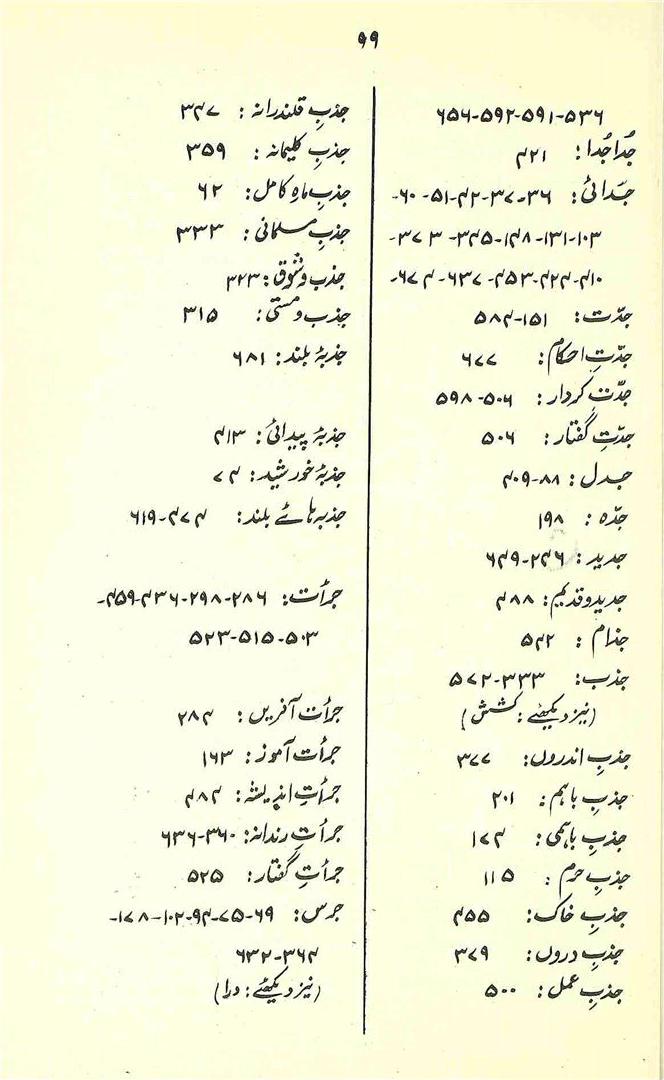 ۹۹
۵۳۶-۵۹۱-۵۹۲-۶۵۶
جُدا جُدا: ۴۲۱
جدّائی: ۳۶-۳۷-۴۲-۵۱-۶۰-
۱۰۳-۱۳۱-۱۴۸-۳۴۵-۳۷۳-
۴۱۰-۴۲۴-۴۵۳-۶۳۷-۶۷۴-
جدّت: ۱۵۱-۵۸۴
جدّتِ احکام: ۶۷۷
جدّتِ کردار: ۵۰۶-۵۹۸
جدّتِ گفتار: ۵۰۶
جدل: ۸۸-۴۰۹
جدّہ: ۱۹۸
جدید: ۲۴۶-۶۴۹
جدید و قدیم: ۴۸۸
جذام: ۵۴۲
جذب: ۳۳۳-۵۷۲
(نیز دیکھئے: کشش)
جذبِ اندروں: ۳۷۷
جذبِ باہم: ۲۰۱
جذبِ باہمی: ۱۷۴
جذبِ حرم: ۱۱۵
جذبِ خاک: ۴۵۵
جذبِ دروں: ۳۷۹
جذبِ عمل: ۵۰۰
جذبِ قلندرانہ: ۳۴۷
جذبِ کلیمانہ: ۳۵۹
جذبِ ماہِ کامل: ۶۲
جذبِ مسلمانی: ۳۳۳
جذب و شوق: ۳۲۳
جذب و مستی: ۳۱۵
جذبۂ بلند: ۶۸۱
جذبۂ پیدائی: ۴۱۳
جذبۂ خورشید: ۷۴
جذبہ ہائے بلند: ۴۷۴-۶۱۹
جرأت: ۲۸۶-۲۹۸-۴۳۶-۴۵۹-
۵۰۳-۵۱۵-۵۲۳
جرأت آفریں: ۲۸۴
جرأت آموز: ۱۶۳
جرأتِ اندیشہ: ۴۸۴
جرأتِ رندانہ: ۳۶۰-۶۳۶
جرأتِ گفتار: ۵۲۵
جرس: ۶۹-۷۵-۹۴-۱۰۲-۱۷۸-
۳۶۴-۶۳۲
(نیز دیکھئے: درا)